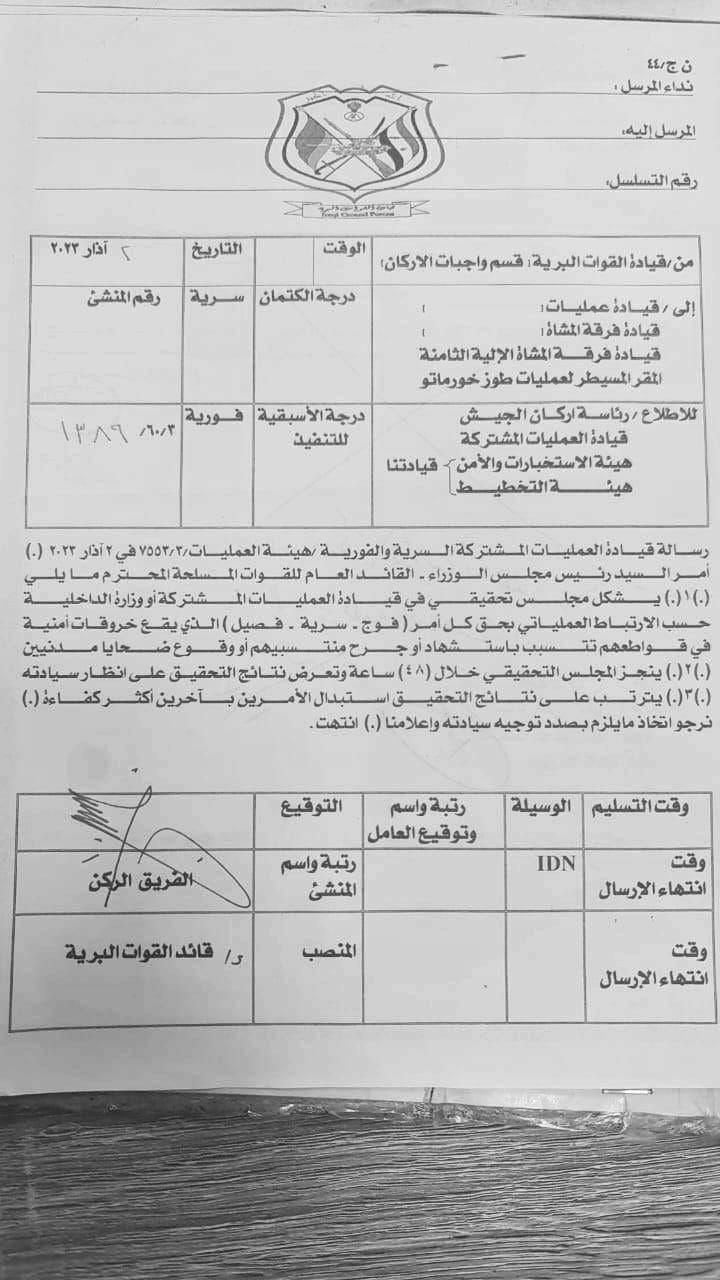 ن ج/٤٤
نداء المرسل :
المرسل إليه:
رقم التسلسل:
Iraqi Ground Forces
من/ قيادة القوات البرية: قسم واجبات الاركان: الوقت التاريخ ٢ آذار ٢٠٢٣
إلى / قيادة عمليات: درجة الكتمان سرية رقم المنشئ
قيادة فرقة المشاة:
قيادة فرقة المشاة الالية الثامنة
المقر المسيطر لعمليات طوز خورماتو
للاطلاع / رئاسة اركان الجيش درجة الأسبقية فورية ٦٠/٣/ ١٣٨٦
قيادة العمليات المشتركة للتنفيذ
هيئة الاستخبارات والأمن قيادتنا
هيئة التخطيط
رسالة قيادة العمليات المشتركة السرية والفورية /هيئة العمليات/٧٥٥٣/٣ في ٢ آذار ٢٠٢٣ (.)
أمر السيد رئيس مجلس الوزراء - القائد العام للقوات المسلحة المحترم ما يلي
(.)١(.) يشكل مجلس تحقيقي في قيادة العمليات المشتركة أو وزارة الداخلية
حسب الارتباط العملياتي بحق كل أمر ( فوج - سرية - فصيل ) الذي يقع خروقات أمنية
في قواطعهم تتسبب باستشهاد أو جرح منتسبيهم أو وقوع ضحايا مدنيين
(.)٢(.) ينجز المجلس التحقيقي خلال (٤٨) ساعة وتعرض نتائج التحقيق على انظار سيادته
(.)٣(.) يترتب على نتائج التحقيق استبدال الأمرين بآخرين أكثر كفاءة (.)
نرجو اتخاذ مايلزم بصدد توجيه سيادته وإعلامنا (.) انتهت.
وقت التسليم الوسيلة رتبة واسم التوقيع
وتوقيع العامل
وقت IDN رتبة واسم الفريق الركن
انتهاء الإرسال المنشئ
وقت المنصب و/ قائد القوات البرية
انتهاء الإرسال